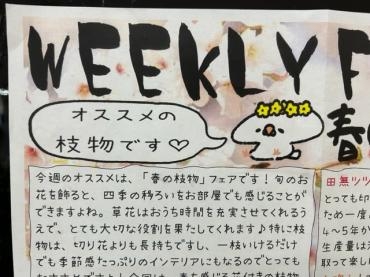 WEEKLY F
オススメの
枝物です♡
春
今週のオススメは、「春の枝物」フェアです！旬のお
花を飾ると、四季の移ろいをお部屋でも感じることが
できますよね。草花はおうち時間を充実させてくれるう
えで、とても大切な役割を果たしてくれます♪特に枝
物は、切り花よりも長持ちですし、一枝いけるだけ
でも季節感たっぷりのインテリアにもなるのでとっても
田無ツツ
とっても切
ため一度
4〜5年か
生産量は